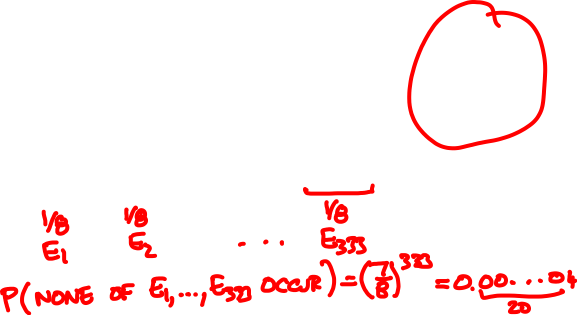 1/8 1/8 1/8
E₁ E₂ ... E₃₃₃
P(NONE OF E₁,...,E₃₃₃ OCCUR) = (7/8)³³³ = 0.00...04
20